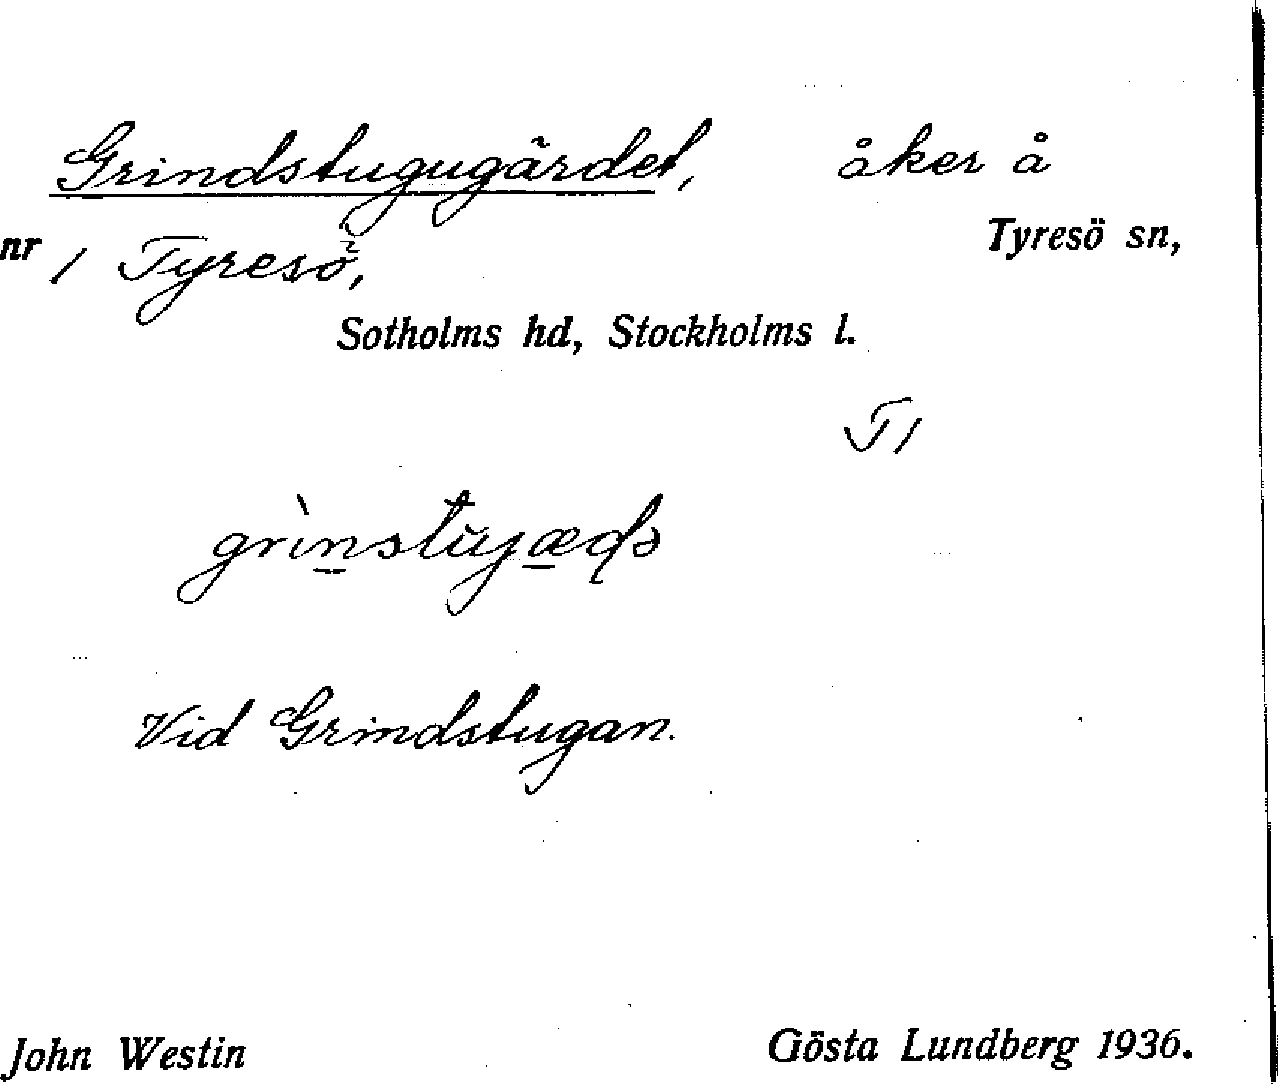 Grindstugugärdet, åker å
Tyresö sn,
nr 1 Tyresö,
Sotholms hd, Stockholms l.
T1
Vid Grindstugan.
John Westin Gösta Lundberg 1936.